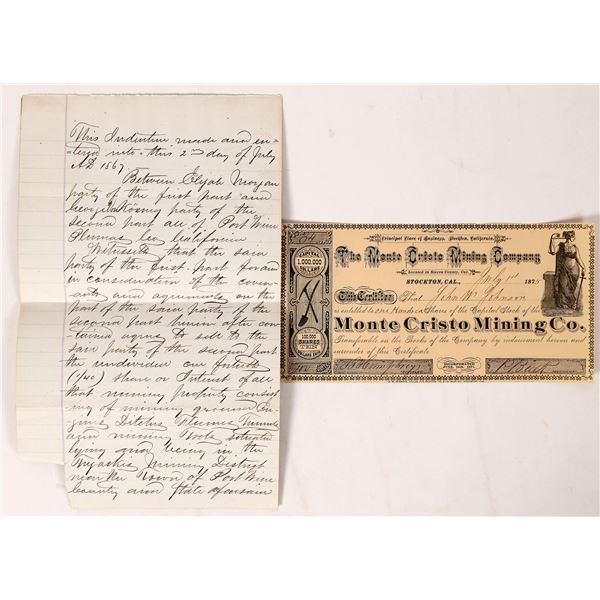 This Indenture made and en=
=tered into this 2nd day of July
AD 1867.
Between Elijah Morgan
party of the first part and
George party of the
second part all of Port Wine
Plumas Co California
Witnesseth that the said
party of the first part for and
in consideration of the coven-
ants and agreements on the
part of the said party of the
second part herein after con-
tained agrees to sell to the
said party of the second part
the undivided one fortieth
(1/40) share or Interest of all
that mining property consist
ing of mining ground En
gines Ditches Flumes Tunnels
and mining Tools situated
lying and being in the
Mining District
near the Town of Port Wine
County and State aforesaid
Principal Place of Business, Stockton, California.
The Monte Cristo Mining Company
Located in Sierra County, Cal.
STOCKTON, CAL., July 1st 1875
CAPITAL
1,000,000
DOLLARS
This Certifies That John W. Johnson
is entitled to one Hundred Shares of the Capital Stock of the
Monte Cristo Mining Co.
Transferable on the Books of the Company by endorsement hereon and
surrender of this Certificate.
100,000
SHARES
TEN
DOLLARS EACH
INCORPORATED